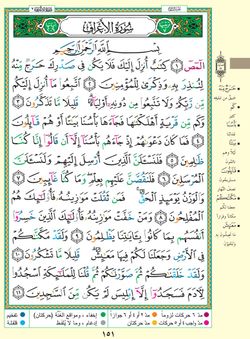 سُورَةُ الْأَعْرَافِ
بِسْمِ ٱللَّهِ ٱلرَّحْمَٰنِ ٱلرَّحِيمِ
الٓمٓصٓ ١ كِتَٰبٌ أُنزِلَ إِلَيْكَ فَلَا يَكُن فِى صَدْرِكَ حَرَجٌ مِّنْهُ
لِتُنذِرَ بِهِۦ وَذِكْرَىٰ لِلْمُؤْمِنِينَ ٢ ٱتَّبِعُوا۟ مَآ أُنزِلَ إِلَيْكُم
مِّن رَّبِّكُمْ وَلَا تَتَّبِعُوا۟ مِن دُونِهِۦٓ أَوْلِيَآءَ قَلِيلًا مَّا تَذَكَّرُونَ ٣
وَكَم مِّن قَرْيَةٍ أَهْلَكْنَٰهَا فَجَآءَهَا بَأْسُنَا بَيَٰتًا أَوْ هُمْ قَآئِلُونَ ٤
فَمَا كَانَ دَعْوَىٰهُمْ إِذْ جَآءَهُم بَأْسُنَآ إِلَّآ أَن قَالُوٓا۟ إِنَّا كُنَّا
ظَٰلِمِينَ ٥ فَلَنَسْـَٔلَنَّ ٱلَّذِينَ أُرْسِلَ إِلَيْهِمْ وَلَنَسْـَٔلَنَّ
ٱلْمُرْسَلِينَ ٦ فَلَنَقُصَّنَّ عَلَيْهِم بِعِلْمٍ وَمَا كُنَّا غَآئِبِينَ ٧
وَٱلْوَزْنُ يَوْمَئِذٍ ٱلْحَقُّ فَمَن ثَقُلَتْ مَوَٰزِينُهُۥ فَأُو۟لَٰٓئِكَ هُمُ
ٱلْمُفْلِحُونَ ٨ وَمَنْ خَفَّتْ مَوَٰزِينُهُۥ فَأُو۟لَٰٓئِكَ ٱلَّذِينَ خَسِرُوٓا۟
أَنفُسَهُم بِمَا كَانُوا۟ بِـَٔايَٰتِنَا يَظْلِمُونَ ٩ وَلَقَدْ مَكَّنَّٰكُمْ
فِى ٱلْأَرْضِ وَجَعَلْنَا لَكُمْ فِيهَا مَعَٰيِشَ قَلِيلًا مَّا تَشْكُرُونَ ١٠
وَلَقَدْ خَلَقْنَٰكُمْ ثُمَّ صَوَّرْنَٰكُمْ ثُمَّ قُلْنَا لِلْمَلَٰٓئِكَةِ ٱسْجُدُوا۟
لِءَادَمَ فَسَجَدُوٓا۟ إِلَّآ إِبْلِيسَ لَمْ يَكُن مِّنَ ٱلسَّٰجِدِينَ ١١
مدّ ٦ حركات لزوماً مدّ ٢ أو ٤ أو ٦ جوازاً إخفاء، ومواقع الغُنّة (حركتان) تفخيم
مدّ واجب ٤ أو ٥ حركات مدّ حركتان إدغام، وما لا يُلفظ قلقلة
١٥١